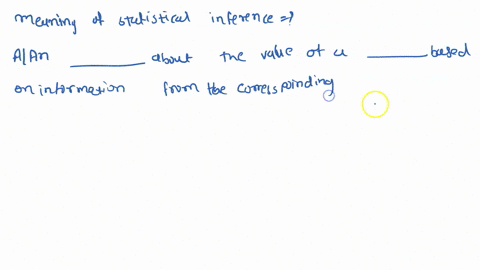 meaning of statistical inference ⇒
A/An ________ about the value of a ______ based
on information from the correspoinding